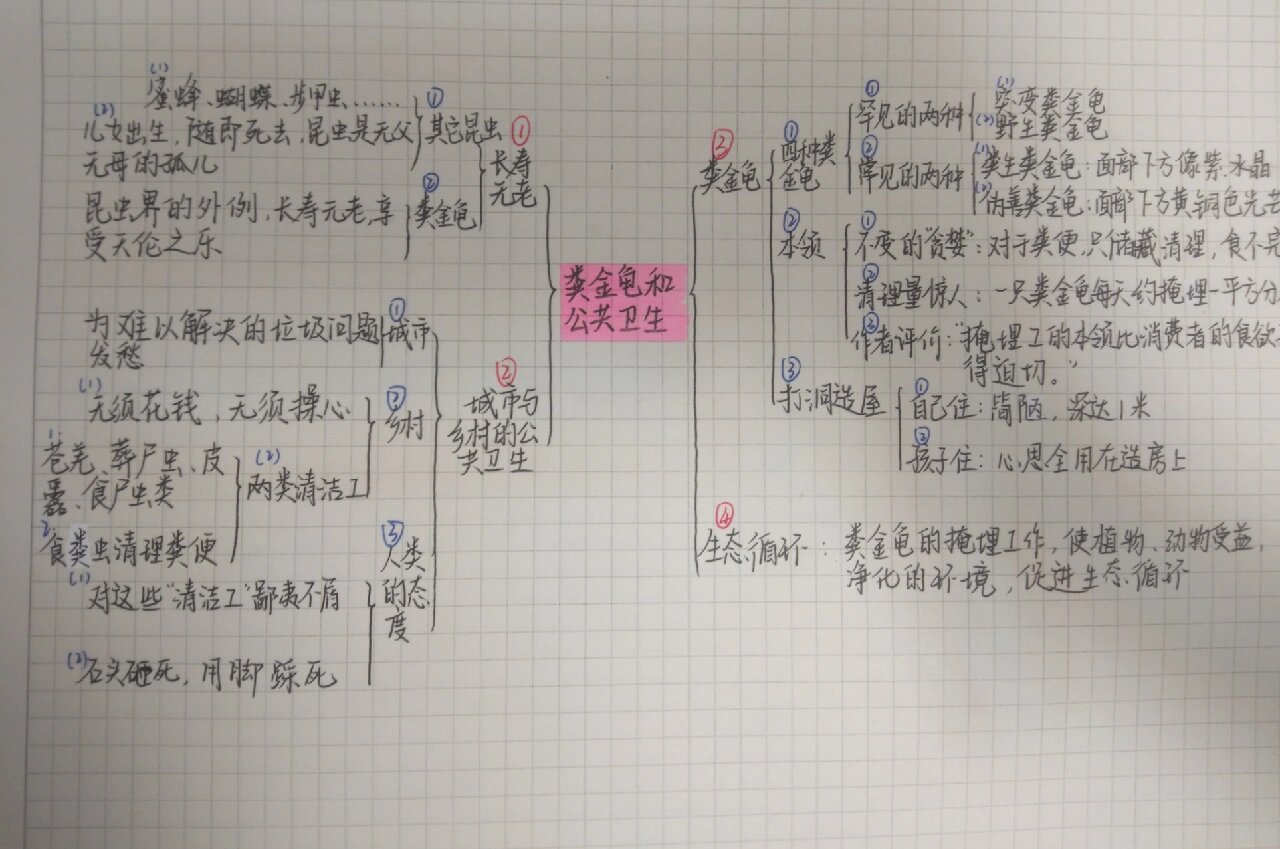 粪金龟和
公共卫生
①
长寿
元老
①
其它昆虫
(1)
蜜蜂、蝴蝶、步甲虫……
(2)
儿女出生，随即死去，昆虫是无父
无母的孤儿
②
粪金龟
昆虫界的外例，长寿元老，享
受天伦之乐
②
城市与
乡村的公
共卫生
①
城市
为难以解决的垃圾问题
发愁
②
乡村
(1)
无须花钱，无须操心
(2)
两类清洁工
1.
苍羌、葬尸虫、皮
蠹、食尸虫类
2.
食粪虫清理粪便
③
人类
的态
度
(1)
对这些“清洁工”鄙夷不屑
(2)
石头砸死，用脚踩死
③
粪金龟
①
四种粪
金龟
①
罕见的两种
(1)
突变粪金龟
(2)
野生粪金龟
②
常见的两种
(1)
粪生粪金龟：面部下方像紫水晶
(2)
伪善粪金龟：面部下方黄铜色光芒
②
本领
①
不变的“贪婪”：对于粪便，只储藏清理，食不完
②
清理量惊人：一只粪金龟每天约掩埋一平方分
③
作者评价：“掩埋工的本领比消费者的食欲
得迫切。”
③
打洞造屋
①
自己住：简陋，深达1米
②
孩子住：心思全用在造房上
④
生态循环：粪金龟的掩埋工作，使植物、动物受益，
净化的环境，促进生态循环